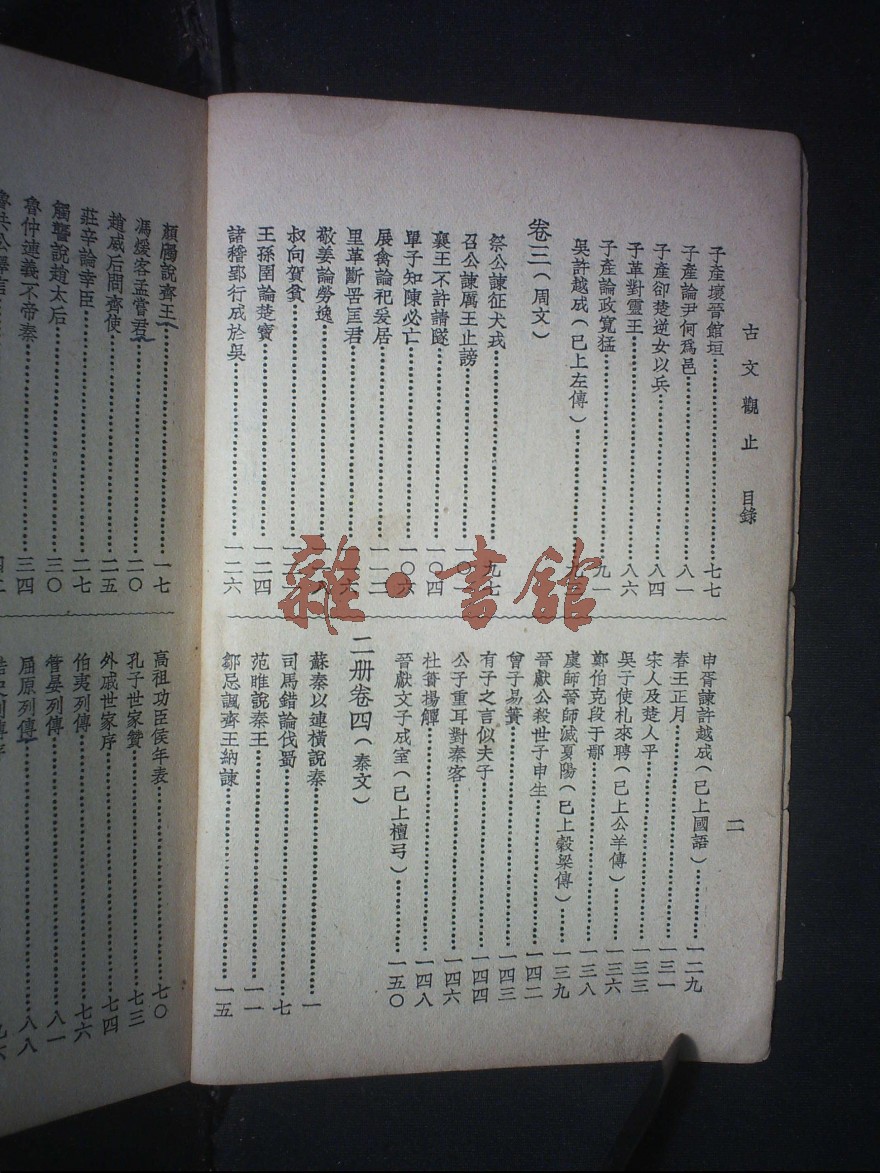 古文觀止 目錄
二
子產壞晉館垣 七七
子產論尹何爲邑 八一
子產卻楚逆女以兵 八四
子革對靈王 八六
子產論政寬猛 九一
吳許越成(已上左傳)
卷三(周文)
祭公諫征犬戎 九七
召公諫厲王止謗
襄王不許請隧 一〇四
單子知陳必亡 一〇六
展禽論祀爰居 一一二
里革斷罟匡君
敬姜論勞逸
叔向賀貧
王孫圉論楚寶 一二四
諸稽郢行成於吳 一二六
申胥諫許越成(已上國語) 一二九
春王正月 一三一
宋人及楚人平 一三三
吳子使札來聘(已上公羊傳) 一三六
鄭伯克段于鄢 一三八
虞師晉師滅夏陽(已上穀梁傳) 一三九
晉獻公殺世子申生 一四二
曾子易簀 一四三
有子之言似夫子 一四四
公子重耳對秦客 一四六
杜簣揚觶 一四八
晉獻文子成室(已上檀弓) 一五〇
二册卷四(秦文)
蘇秦以連橫說秦 一
司馬錯論伐蜀 七
范睢說秦王 一一
鄒忌諷齊王納諫 一五
顏斶說齊王 一七
馮煖客孟嘗君 二〇
趙威后問齊使 二五
莊辛論幸臣 二七
觸讋說趙太后 三〇
魯仲連義不帝秦 三四
魯共公擇言
高祖功臣侯年表 七〇
孔子世家贊 七三
外戚世家序 七四
伯夷列傳 七六
管晏列傳 八一
屈原列傳 八八
雜·書館